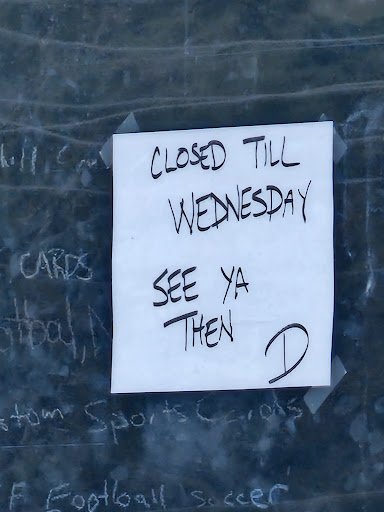 CLOSED TILL
WEDNESDAY
SEE YA
THEN
D
CARDS
Sports Cards
Football soccer